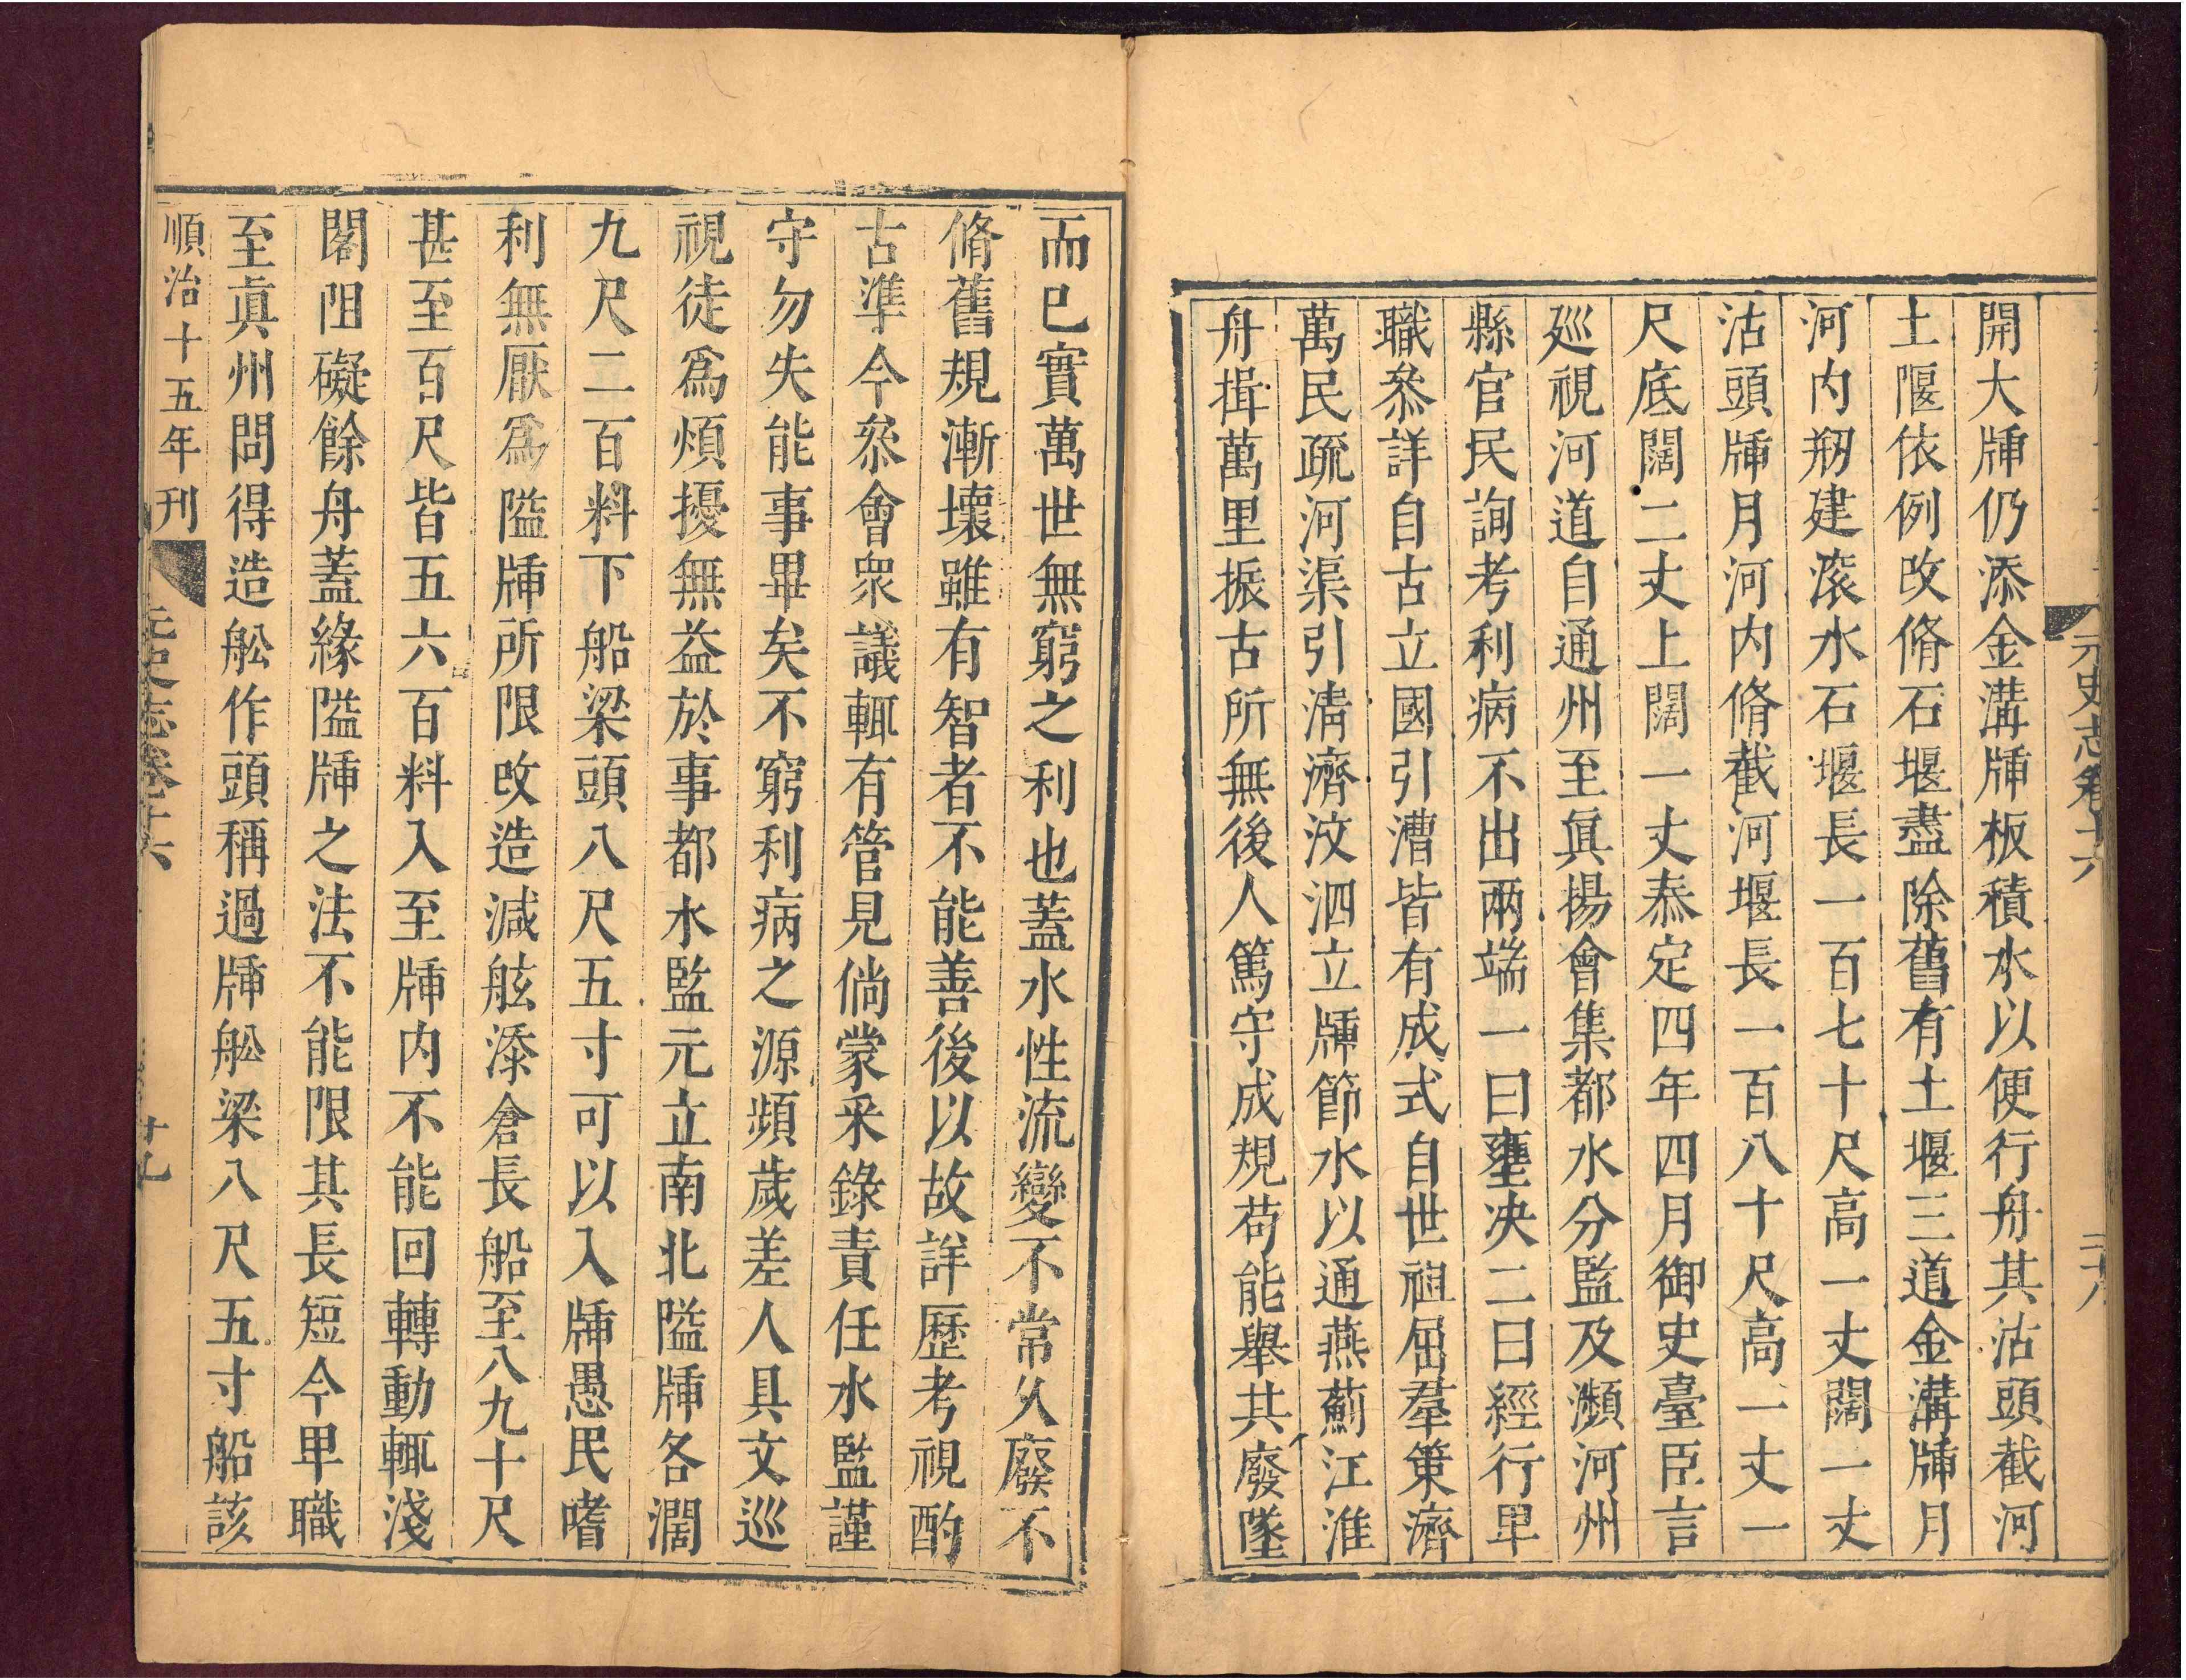 元史志卷十六
二十八
開大牐仍添金溝牐板積水以便行舟其沽頭截河
土堰依例改脩石堰盡除舊有土堰三道金溝牐月
河内剏建滾水石堰長一百七十尺高一丈闊一丈
沽頭牐月河内脩截河堰長一百八十尺高一丈一
尺底闊二丈上闊一丈泰定四年四月御史臺臣言
廵視河道自通州至眞揚會集都水分監及瀕河州
縣官民詢考利病不出兩端一曰壅決二曰經行卑
職叅詳自古立國引漕皆有成式自世祖屈羣策濟
萬民疏河渠引淸濟汶泗立牐節水以通燕薊江淮
舟揖萬里振古所無後人篤守成規苟能舉其廢墜
而已實萬世無窮之利也蓋水性流變不常久廢不
脩舊規漸壞雖有智者不能善後以故詳歷考視酌
古準今叅會衆議輒有管見倘蒙采錄責任水監謹
守勿失能事畢矣不窮利病之源頻歲差人具文巡
視徒爲煩擾無益於事都水監元立南北隘牐各濶
九尺二百料下船梁頭八尺五寸可以入牐愚民嗜
利無厭爲隘牐所限改造減舷漆倉長船至八九十尺
甚至百尺皆五六百料入至牐内不能回轉動輒淺
閣阻礙餘舟蓋緣隘牐之法不能限其長短今卑職
至眞州問得造舩作頭稱過牐舩梁八尺五寸船該
順治十五年刊
元史志卷十六
二十九